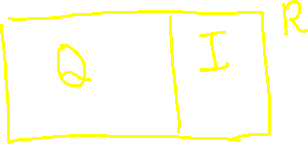 Q I R